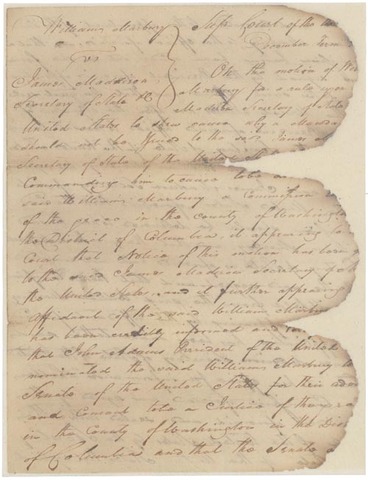 William Marbury Supr Court of the
vs December Term
James Maddison On the motion of
Secretary of State Marbury for a rule upon
Madison Secretary of State
United States to shew cause why a Manda
should not be to the said James
Secretary of State of the United
Commanding him to cause to be
said William Marbury a Commission
of the peace in the County of Washington
the District of Columbia it appearing to
Court that Notice of this motion has been
to the said James Madison Secretary of
the United States and it further appearing
Affidavit of the said William Marbury
has been credibly informed and
that John Adams President of the United
nominated the said William Marbury to
Senate of the United States for their
and Consent to be a Justice of the
in the County of Washington in the Dis
of Columbia and that the Senate